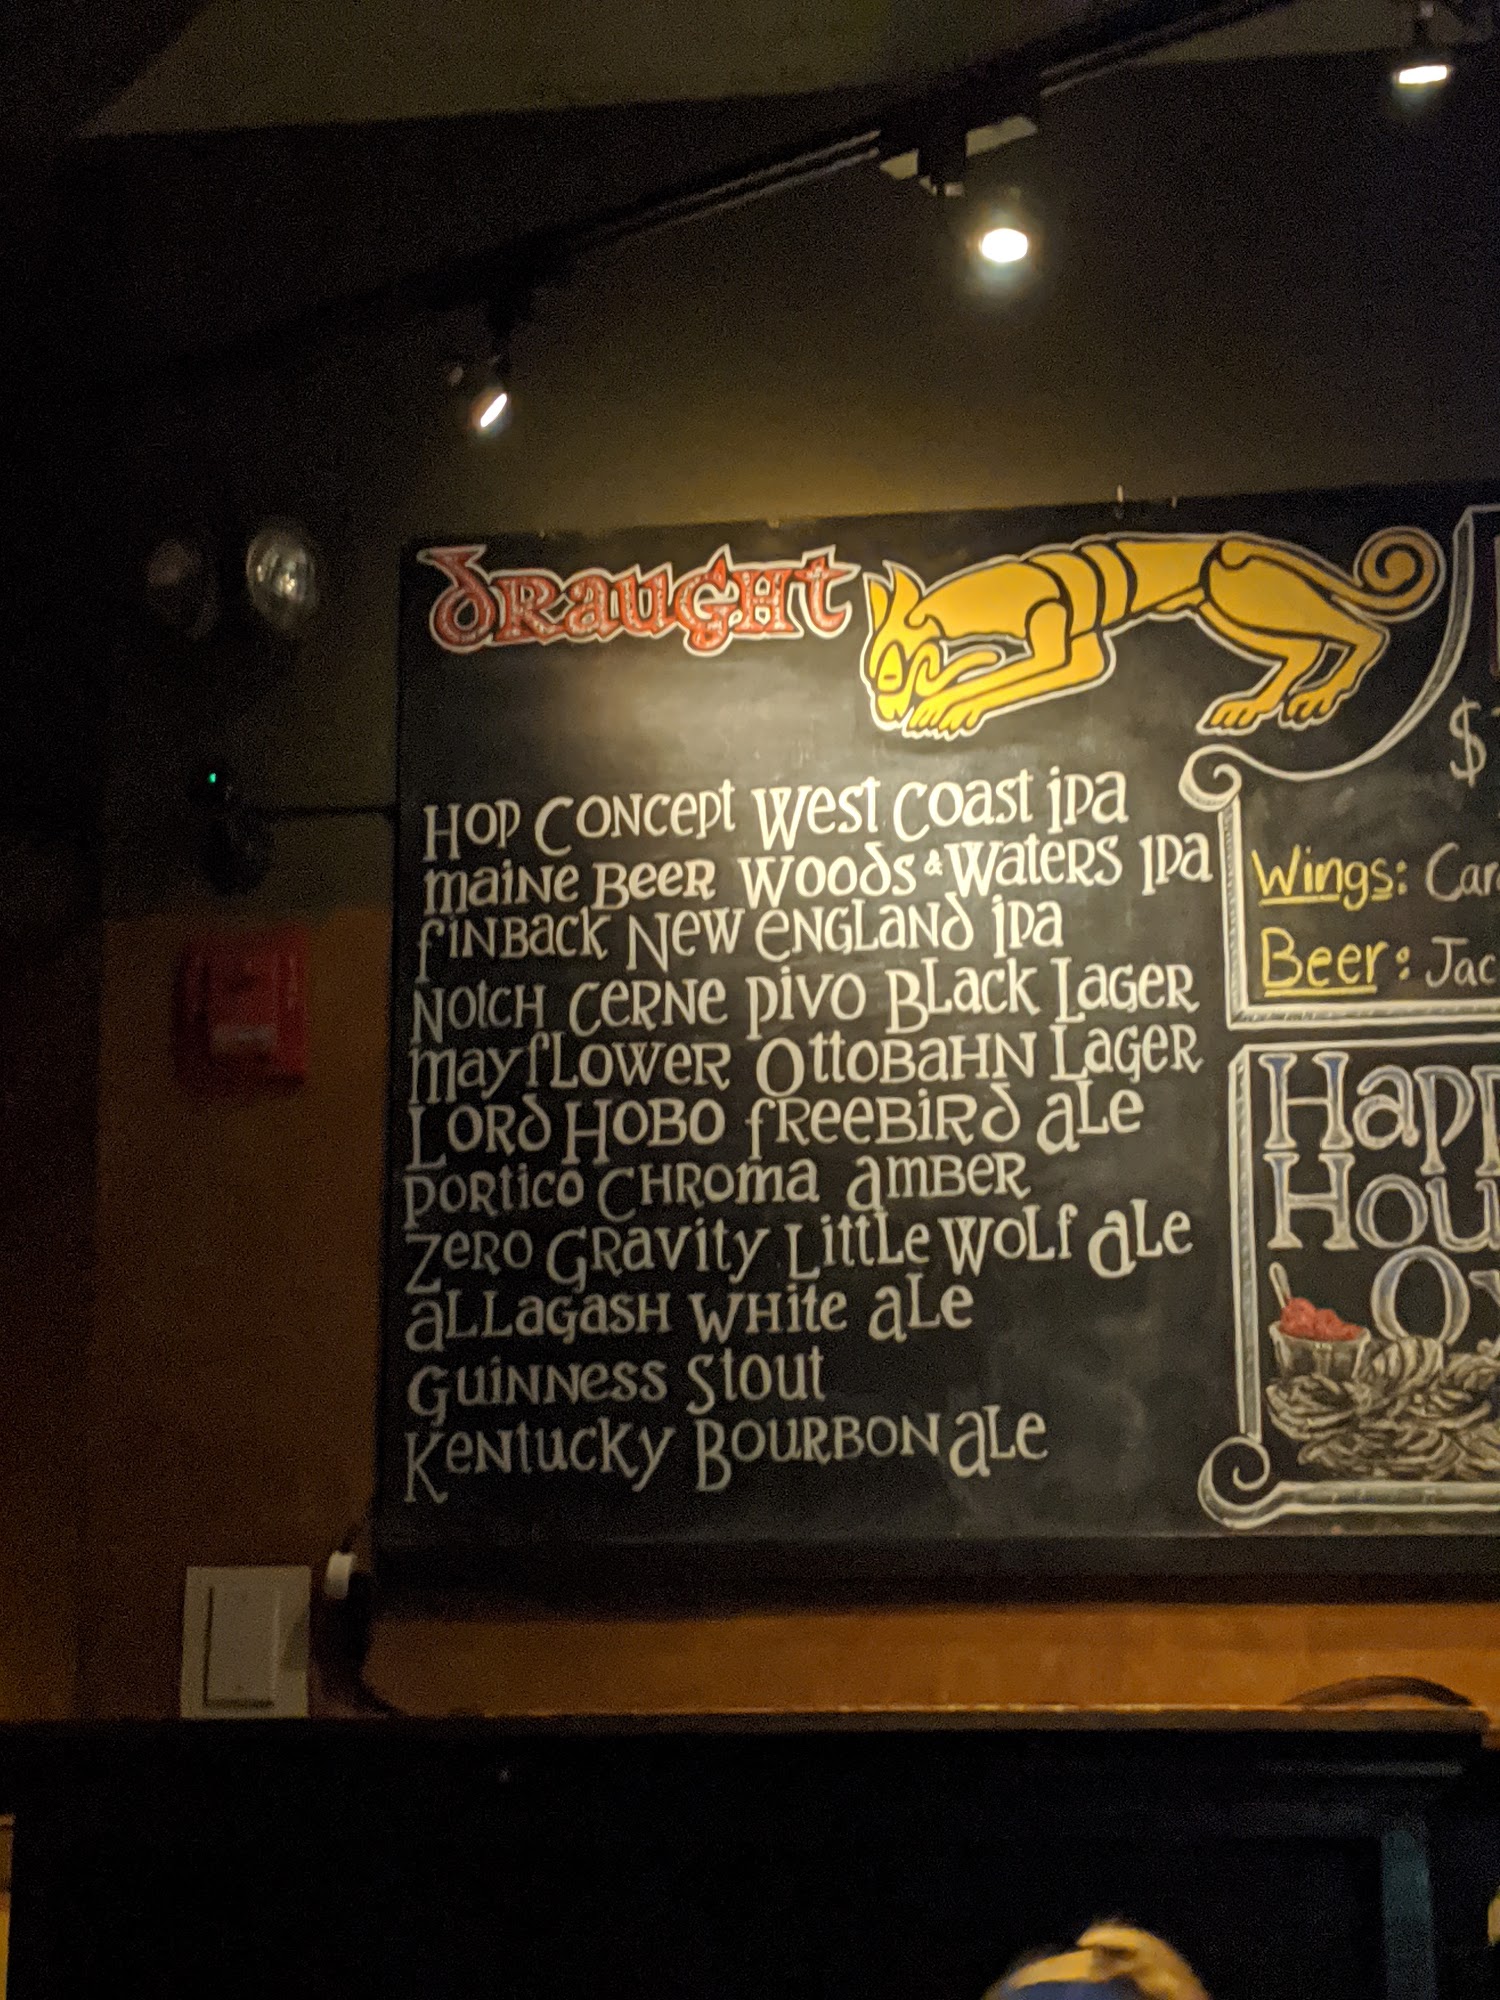 Draught
Hop Concept West Coast IPA
Maine Beer Woods & Waters IPA
Finback New England IPA
Notch Cerne Pivo Black Lager
Mayflower Ottobahn Lager
Lord Hobo Freebird Ale
Portico Chroma Amber
Zero Gravity Little Wolf Ale
Allagash White Ale
Guinness Stout
Kentucky Bourbon Ale
$
Wings:
Beer: